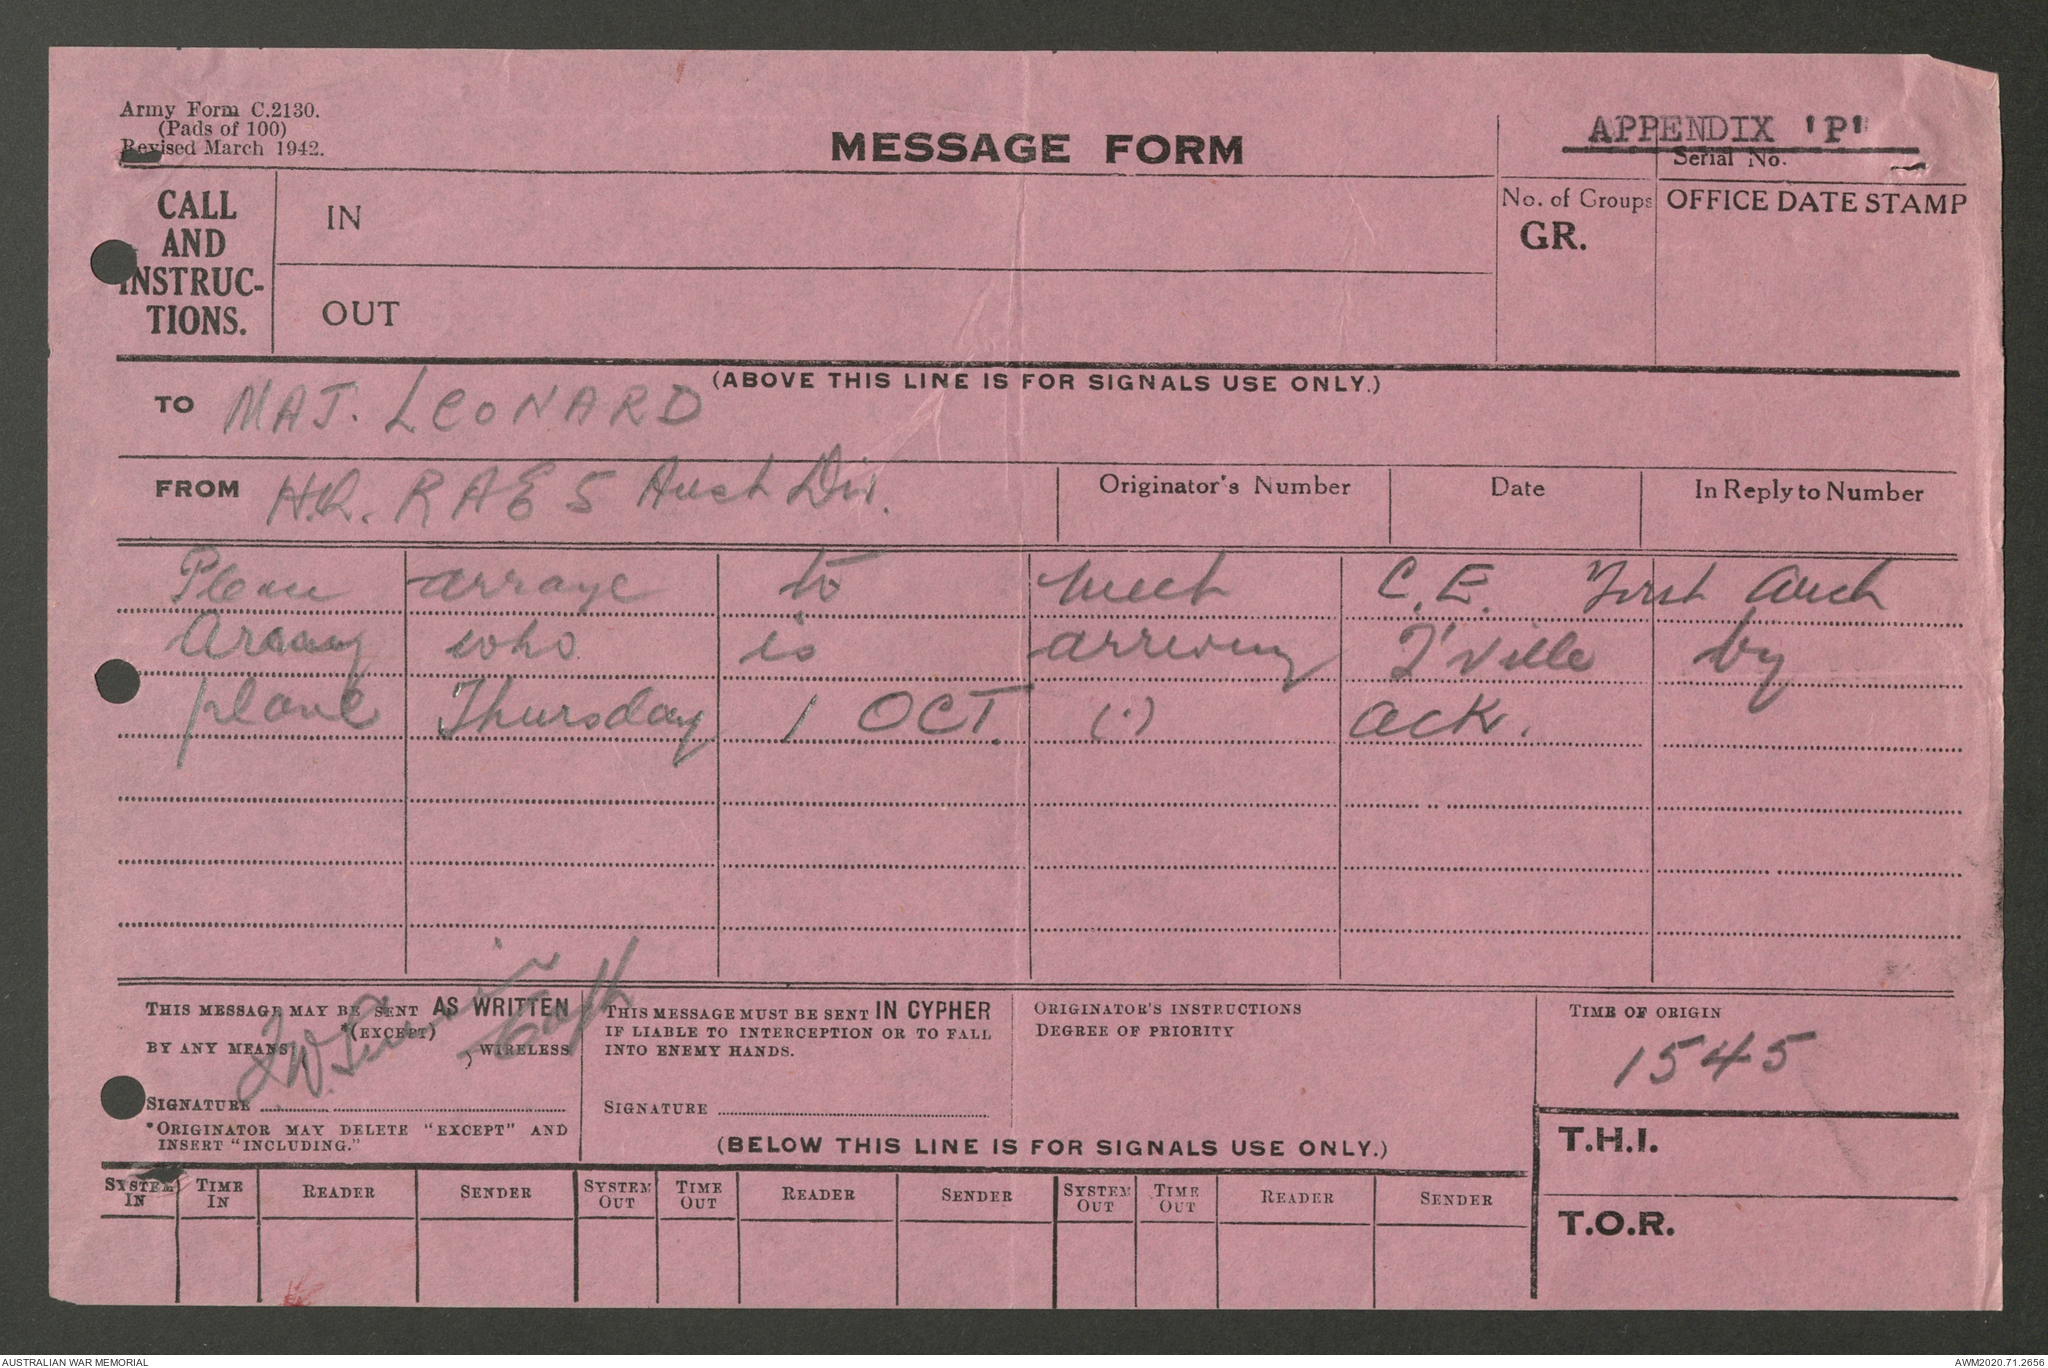 Army Form C.2130.
(Pads of 100)
Revised March 1942.
MESSAGE FORM
APPENDIX 'P'
Serial No.
CALL
AND
INSTRUC-
TIONS.
IN
OUT
No. of Groups
GR.
OFFICE DATE STAMP
(ABOVE THIS LINE IS FOR SIGNALS USE ONLY.)
TO MAJ. LEONARD
FROM H.Q. RAE 5 Aust Div.
Originator's Number
Date
In Reply to Number
Please arrange to meet C.E. First Aust
Army who is arriving T'ville by
plane Thursday 1 OCT. (.) ack.
THIS MESSAGE MAY BE SENT AS WRITTEN
*(EXCEPT)
BY ANY MEANS ( , WIRELESS
SIGNATURE
*ORIGINATOR MAY DELETE "EXCEPT" AND
INSERT "INCLUDING."
THIS MESSAGE MUST BE SENT IN CYPHER
IF LIABLE TO INTERCEPTION OR TO FALL
INTO ENEMY HANDS.
SIGNATURE
ORIGINATOR'S INSTRUCTIONS
DEGREE OF PRIORITY
TIME OF ORIGIN
1545
(BELOW THIS LINE IS FOR SIGNALS USE ONLY.)
T.H.I.
T.O.R.
SYSTEM IN TIME IN READER SENDER SYSTEM OUT TIME OUT READER SENDER SYSTEM OUT TIME OUT READER SENDER
AUSTRALIAN WAR MEMORIAL
AWM2020.71.2656